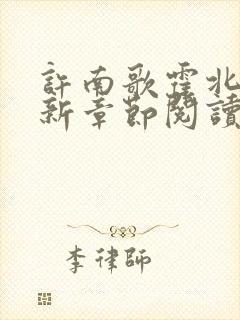 許南歌霍北
新章節閱讀
李律師